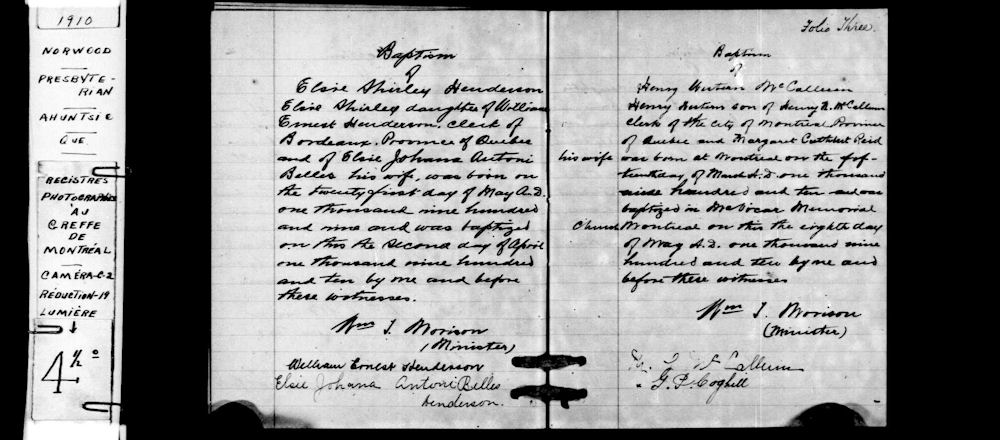 1910
NORWOOD
PRESBYTE-
RIAN
AHUNTSIC
QUE.
REGISTRES
PHOTOGRAPHIÉS
AU
GREFFE
DE
MONTRÉAL
CAMÉRA-C-2
RÉDUCTION-19
LUMIÈRE
4 1/2
Baptism
of
Elsie Shirley Henderson
Elsie Shirley daughter of William
Ernest Henderson, Clerk of
Bordeaux, Province of Quebec
and of Elsie Johana Antoni
Belles his wife, was born on
the twenty first day of May A.D.
one thousand nine hundred
and nine and was baptized
on this the second day of April
one thousand nine hundred
and ten by me and before
these witnesses.
Wm T. Morison
(Minister)
William Ernest Henderson
Elsie Johana Antoni Belles
Henderson.
Folio Three.
Baptism
of
Henry McCallum
Henry son of Henry R. McCallum
Clerk of the City of Montreal Province
of Quebec and Margaret Cuthbert Reid
his wife was born at Montreal on the fif-
teenth day of March A.D. one thousand
nine hundred and ten and was
baptized in MacVicar Memorial
Church Montreal on this the eighth day
of May A.D. one thousand nine
hundred and ten by me and
before these witnesses
Wm T. Morison
(Minister)
Callum
G. P. Coghill